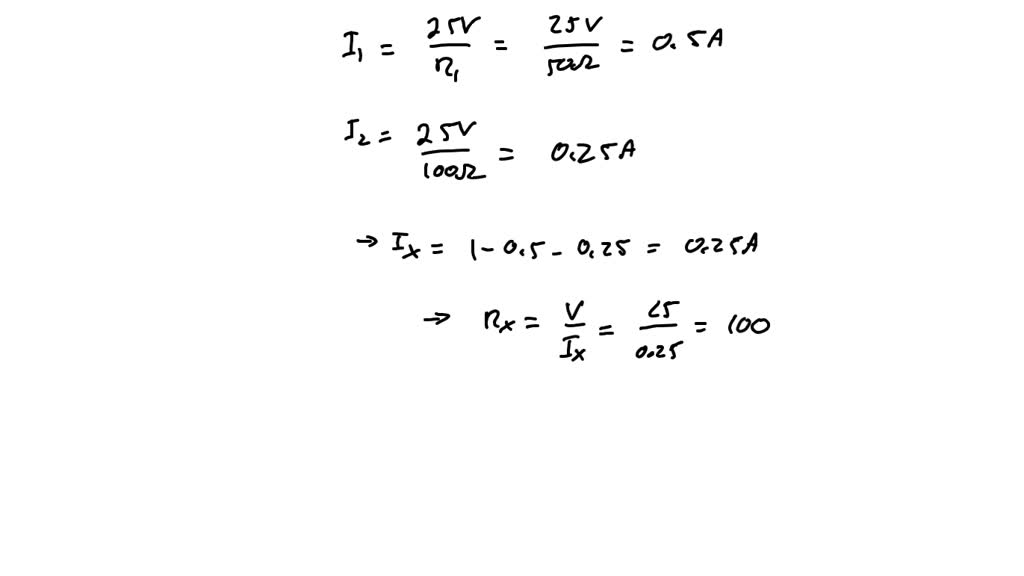 I₁ = 25V/R₁ = 25V/50Ω = 0.5A
I₂ = 25V/100Ω = 0.25A
→ Iₓ = 1 - 0.5 - 0.25 = 0.25A
→ Rₓ = V/Iₓ = 25/0.25 = 100